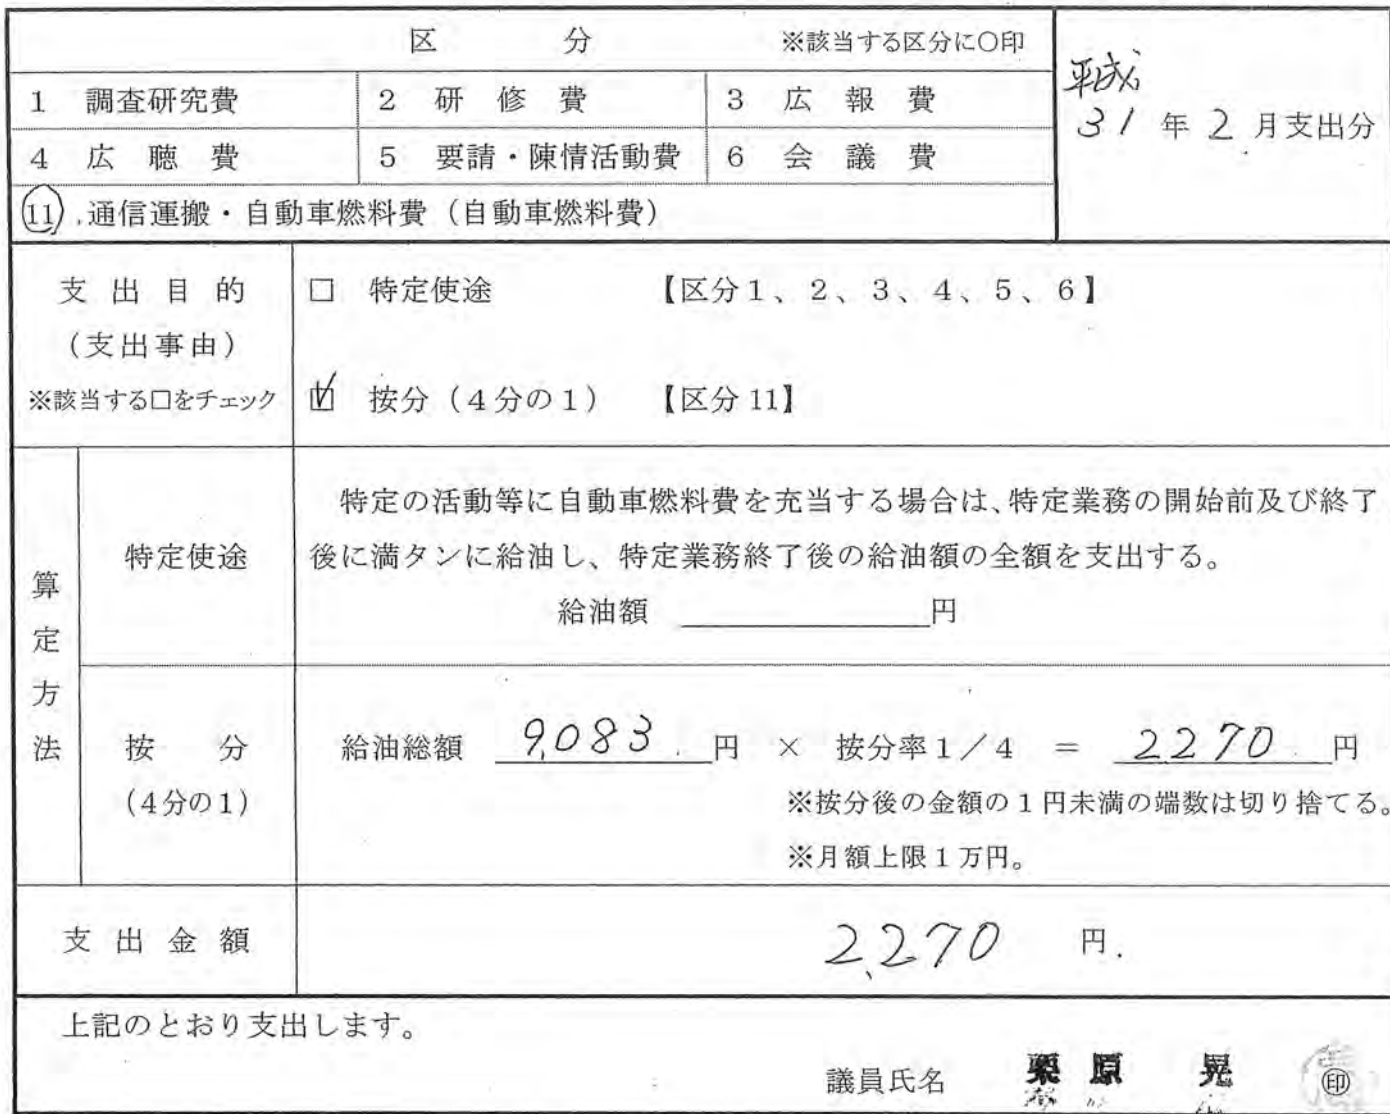 区 分 ※該当する区分に○印
平成
31 年 2 月支出分
1 調査研究費 2 研修費 3 広報費
4 広聴費 5 要請・陳情活動費 6 会議費
⑪.通信運搬・自動車燃料費(自動車燃料費)
支出目的
(支出事由)
※該当する□をチェック
□ 特定使途 【区分1、2、3、4、5、6】
☑ 按分(4分の1) 【区分11】
算定方法
特定使途
特定の活動等に自動車燃料費を充当する場合は、特定業務の開始前及び終了
後に満タンに給油し、特定業務終了後の給油額の全額を支出する。
給油額 円
按分
(4分の1)
給油総額 9,083 円 × 按分率1/4 = 2270 円
※按分後の金額の1円未満の端数は切り捨てる。
※月額上限1万円。
支出金額 2,270 円.
上記のとおり支出します。
議員氏名 栗原 晃 ㊞